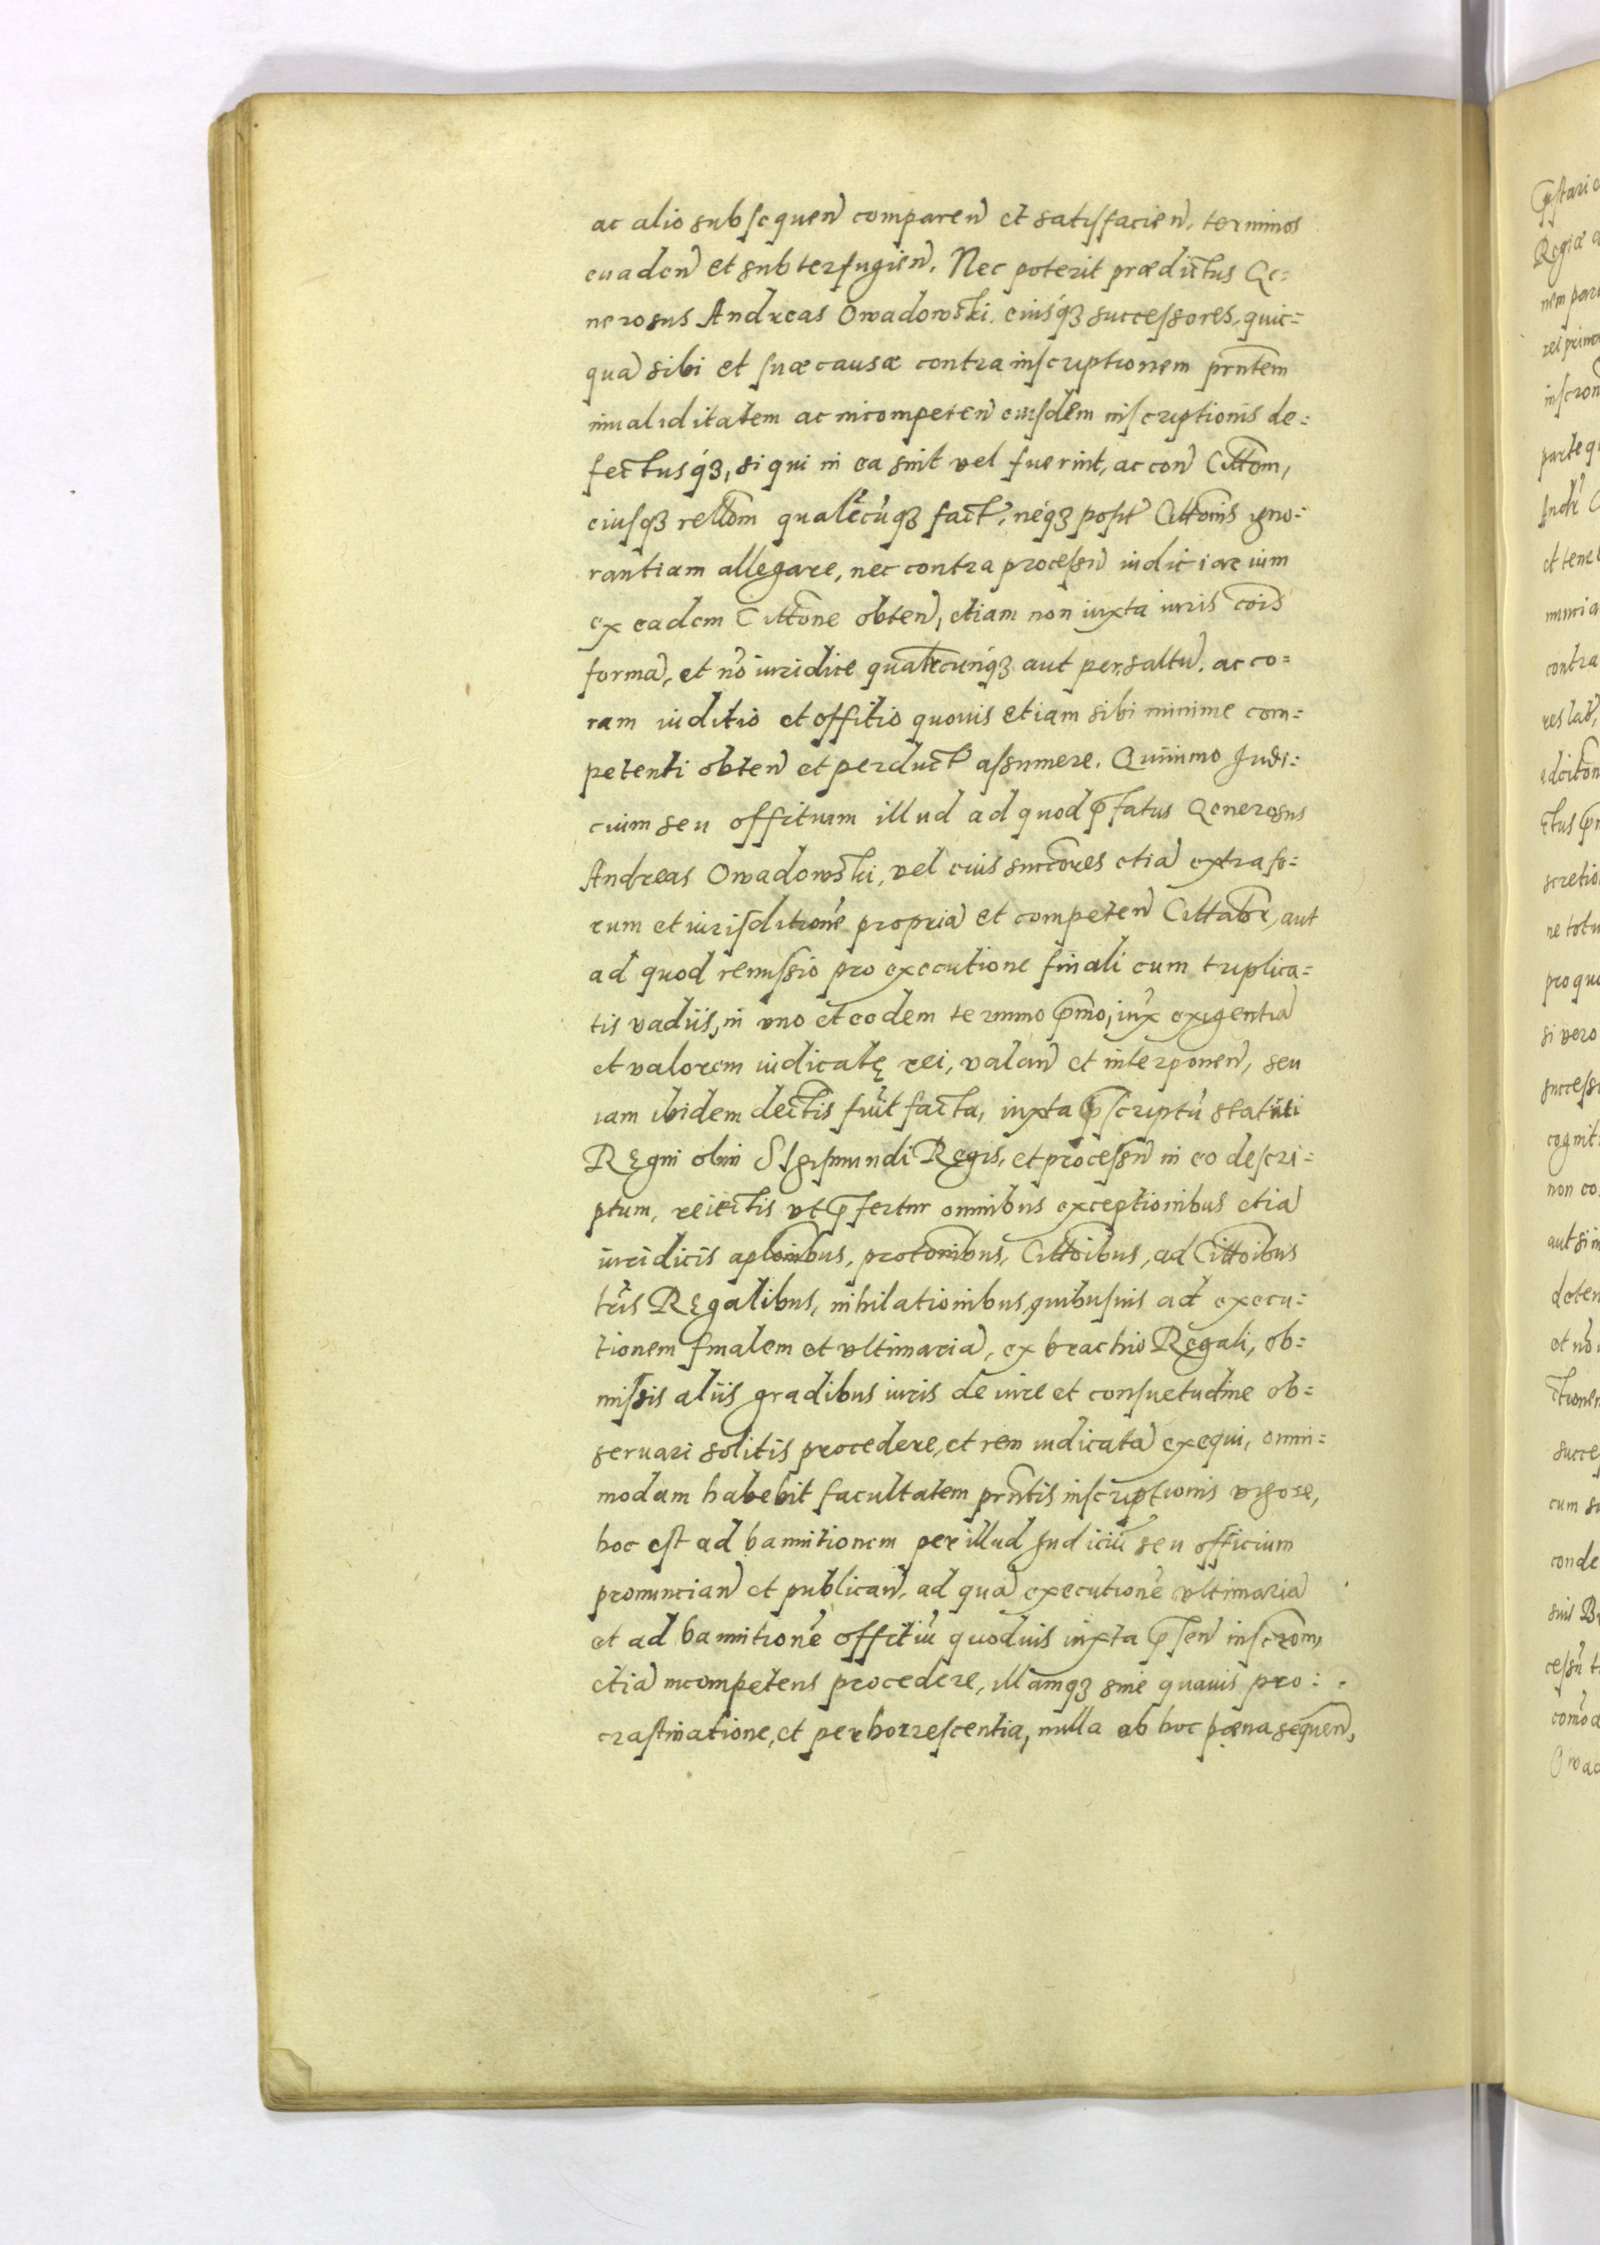 ac alio subsequen comparen et satisfacien, terminos
euaden et subterfugien. Nec poterit prædictus Ge=
nerosus Andreas Owadowski eiusq3 successores, quic=
qua sibi et suæ causæ contra inscriptionem prntem
inualiditatem ac incompeten eiusdem inscriptionis de=
fectusq3, si qui in ea sint vel fuerint, ac con Cittom,
eiusq3 rellom qualecuq3 fact, neq3 post Cittonis igno=
rantiam allegare, nec contra processu iudiciarium
ex eadem Cittone obten, etiam non iuxta iuris cois
forma, et no iuridice qualecunq3 aut per saltu, ac co=
ram iuditio et offitio quouis etiam sibi minime com=
petenti obten et perduct assumere. Quinimo Judi=
cium seu offitium illud ad quod pfatus Generosus
Andreas Owadowski, vel eius succores etia extra fo=
rum et iurisditione propria et competen Cittabr, aut
ad quod remissio pro executione finali cum triplica=
tis vadiis, in vno et eodem termino pmo, iux exigentia
et valorem iudicatę rei, valan et interponen, seu
iam ibidem dectis fuit facta, iuxta pscriptu statuti
Regni olim Sigismundi Regis, et processu in eo descri=
ptum, reiectis vt pfertur omnibus exceptionibus etia
iuridicis aplonibus, protonibus, Cittoibus, ad Cittoibus
tris Regalibus, inhilationibus quibusuis ad execu=
tionem finalem et vltimaria, ex brachio Regali, ob=
missis aliis gradibus iuris de iure et consuetudine ob=
seruari solitis procedere, et rem iudicata exequi, omni=
modam habebit facultatem prntis inscriptionis vigore,
hoc est ad bannitionem per illud Judiciu seu officium
pronuncian et publican, ad qua executione vltimaria
et ad bannitione offitiu quoduis iuxta psen inscrom,
etia incompetens procedere, illamq3 sine quauis pro=
crastinatione, et perhorrescentia, nulla ob hoc pæna sequen,